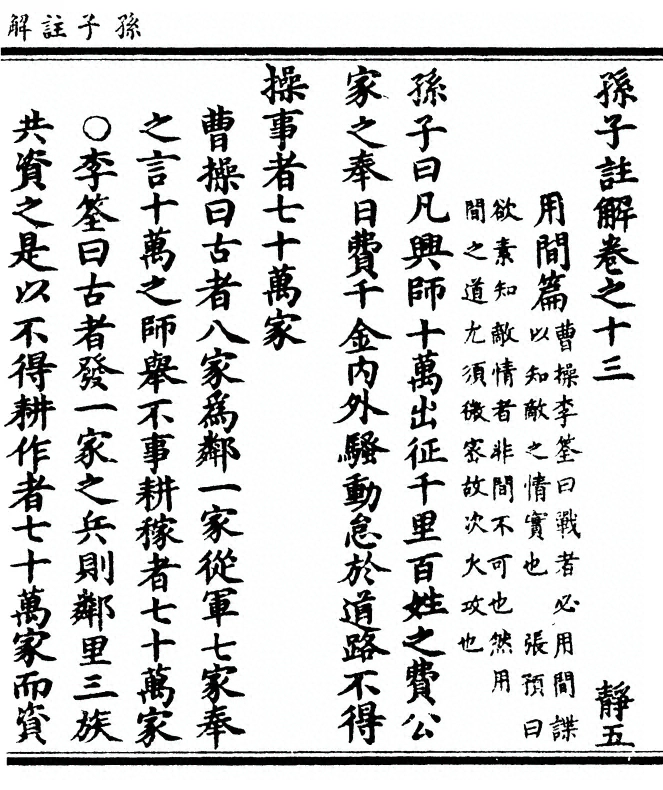 孫子註解
孫子註解卷之十三
靜五
用間篇
曹操李筌曰戰者必用間諜
以知敵之情實也 張預曰
欲素知敵情者非間不可也然用
間之道尤須微密故次火攻也
孫子曰凡興師十萬出征千里百姓之費公
家之奉日費千金內外騷動怠於道路不得
操事者七十萬家
曹操曰古者八家爲鄰一家從軍七家奉
之言十萬之師舉不事耕稼者七十萬家
〇李筌曰古者發一家之兵則鄰里三族
共資之是以不得耕作者七十萬家而資